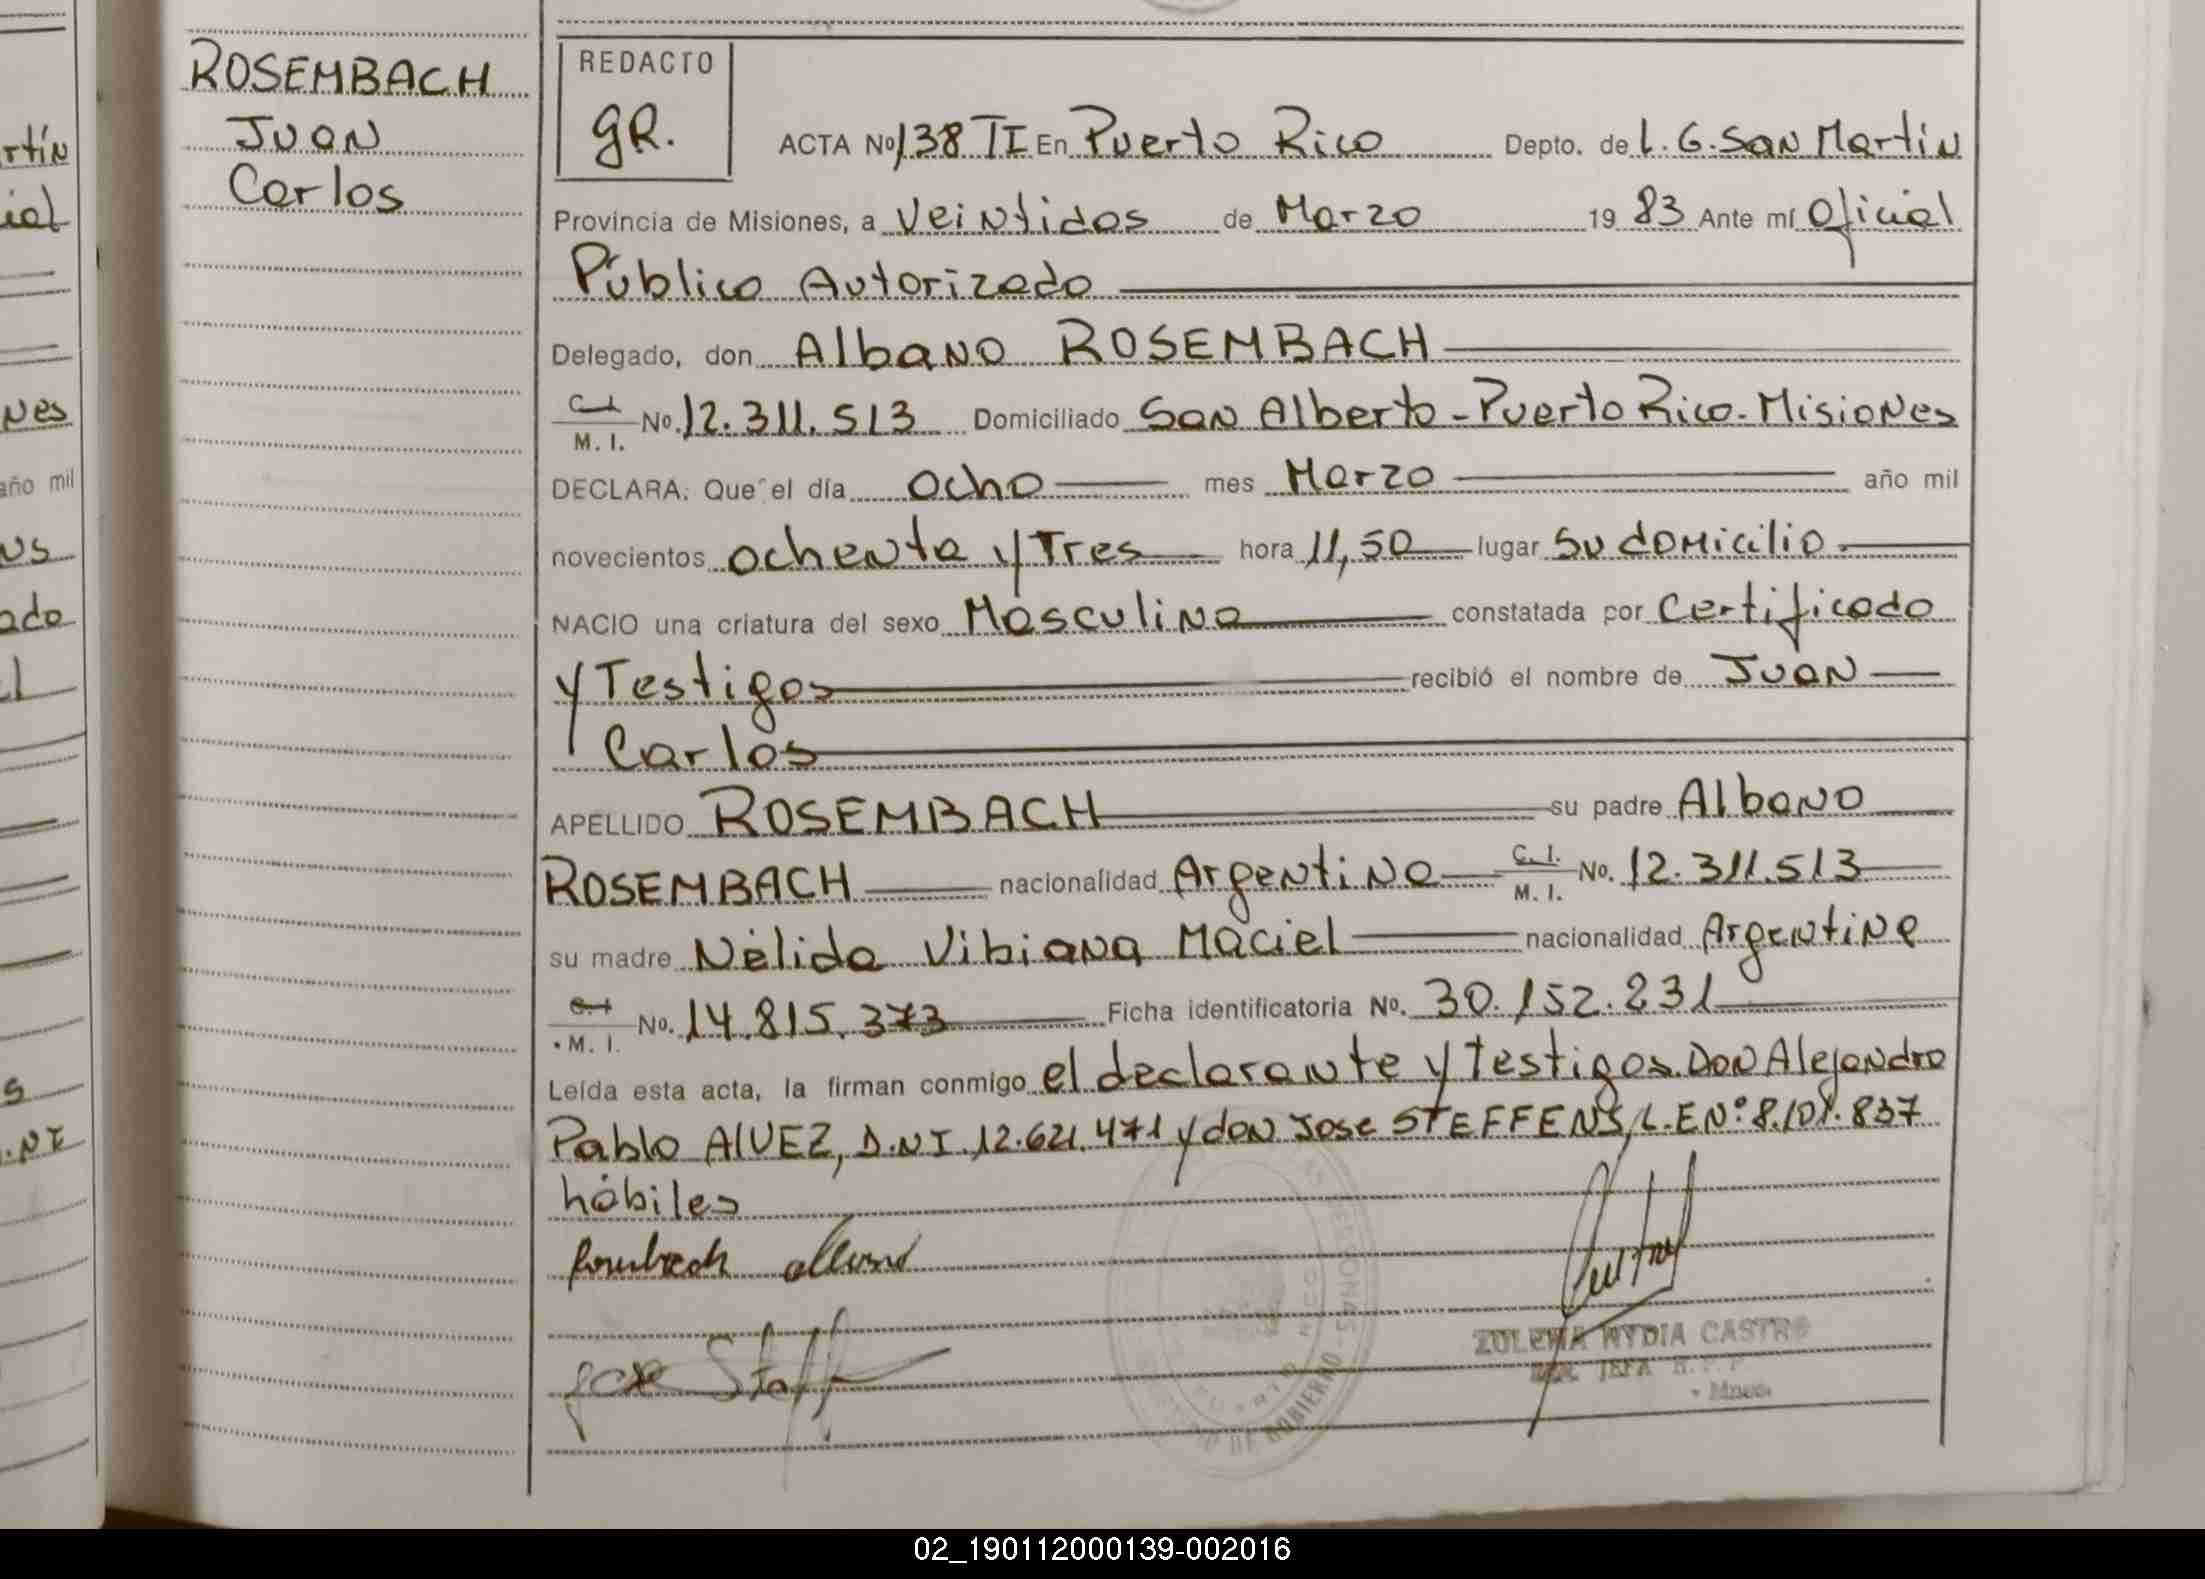 ROSEMBACH
Juan
Carlos
rtín
ial
nes
año mil
ado
REDACTO
gR.
ACTA No 138 TI En Puerto Rico Depto. de L. G. San Martin
Provincia de Misiones, a veintidos de Marzo 19 83 Ante mí Oficial
Público Autorizado
Delegado, don Albano ROSEMBACH
C.I. No. 12.311.513 Domiciliado San Alberto - Puerto Rico - Misiones
M. I.
DECLARA: Que el día ocho mes Marzo año mil
novecientos ochenta y Tres hora 11,50 lugar su domicilio.
NACIO una criatura del sexo Masculino constatada por Certificado
y Testigos recibió el nombre de Juan
Carlos
APELLIDO ROSEMBACH su padre Albano
ROSEMBACH nacionalidad Argentina C.I. No. 12.311.513
M. I.
su madre Nélida Vibiana Maciel nacionalidad Argentina
C.I. No. 14.815.373 Ficha identificatoria No. 30.152.231
M. I.
Leída esta acta, la firman conmigo el declarante y testigos Don Alejandro
Pablo AlVEZ, D.N I. 12.621.471 y don Jose STEFFENS, L.E Nº 8.101.837
hábiles
Rosembach Albano
Jose Steff
ZULEMA NYDIA CASTRO
JEFA R. P. P
Mnes.
DE GOBIERNO
02_190112000139-002016